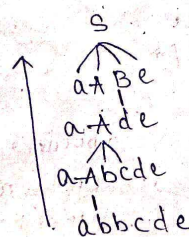 S
aABe
aAde
aAbcde
abbcde